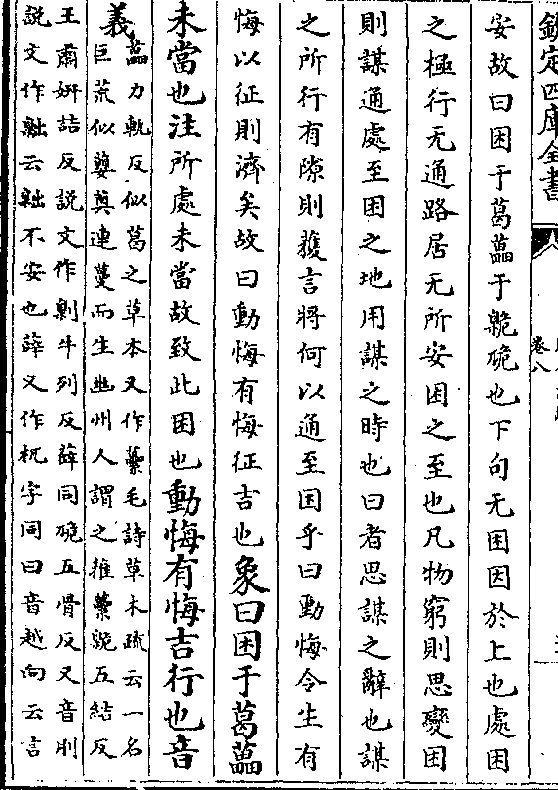 欽定四庫全書
卷八
安故曰困于葛藟于臲硊也下句无困因於上也處困
之極行无通路居无所安困之至也凡物窮則思變困
則謀通處至困之地用謀之時也曰者思謀之辭也謀
之所行有隙則獲言將何以通至困乎曰動悔令生有
悔以征則濟矣故曰動悔有悔征吉也象曰困于葛藟
未當也注所處未當故致此困也動悔有悔吉行也音
義藟力軌反似葛之草本又作虆毛詩草木疏云一名
巨荒似蘡薁連蔓而生幽州人謂之推虆臲五結反
王肅妍詰反說文作劓牛列反薛同硊五骨反又音刖
說文作𡰈云𡰈不安也薛又作杌字同曰音越向云言